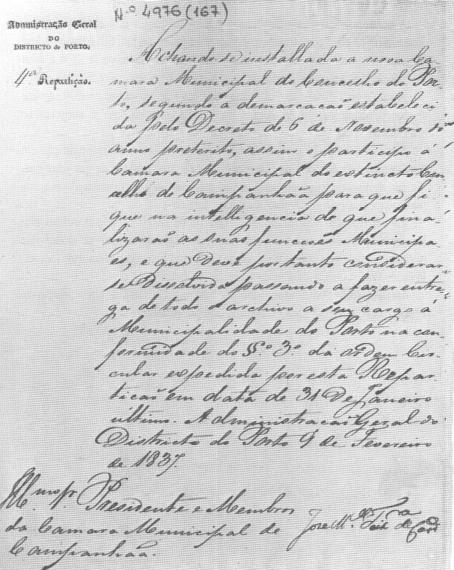 Nº 4976 (167)
Administração Geral
DO
DISTRICTO do PORTO,
4ª Repartição.
Achando se installada a nova Ca-
mara Municipal do Concelho do Por-
to, segundo a demarcação estabeleci-
da pelo Decreto de 6 de Novembro do
anno preterito, assim o participo á
Camara Municipal do extincto Con-
celho de Campanhaã para que fi-
que na intelligencia de que fina-
lizarão as suas funcções Municipa-
es, e que deve portanto considerar-
se dissolvida passando a fazer entre-
ga de todo o archivo a seu cargo a
Municipalidade do Porto na con-
formidade do §.º 3º da ordem Cir-
cular expedida por esta Repar-
tição em data de 31 de Janeiro
ultimo. Administração Geral do
Districto do Porto 9 de Fevereiro
de 1837.
Presidente e Membros
da Camara Municipal de
Campanhaã.
José Mª